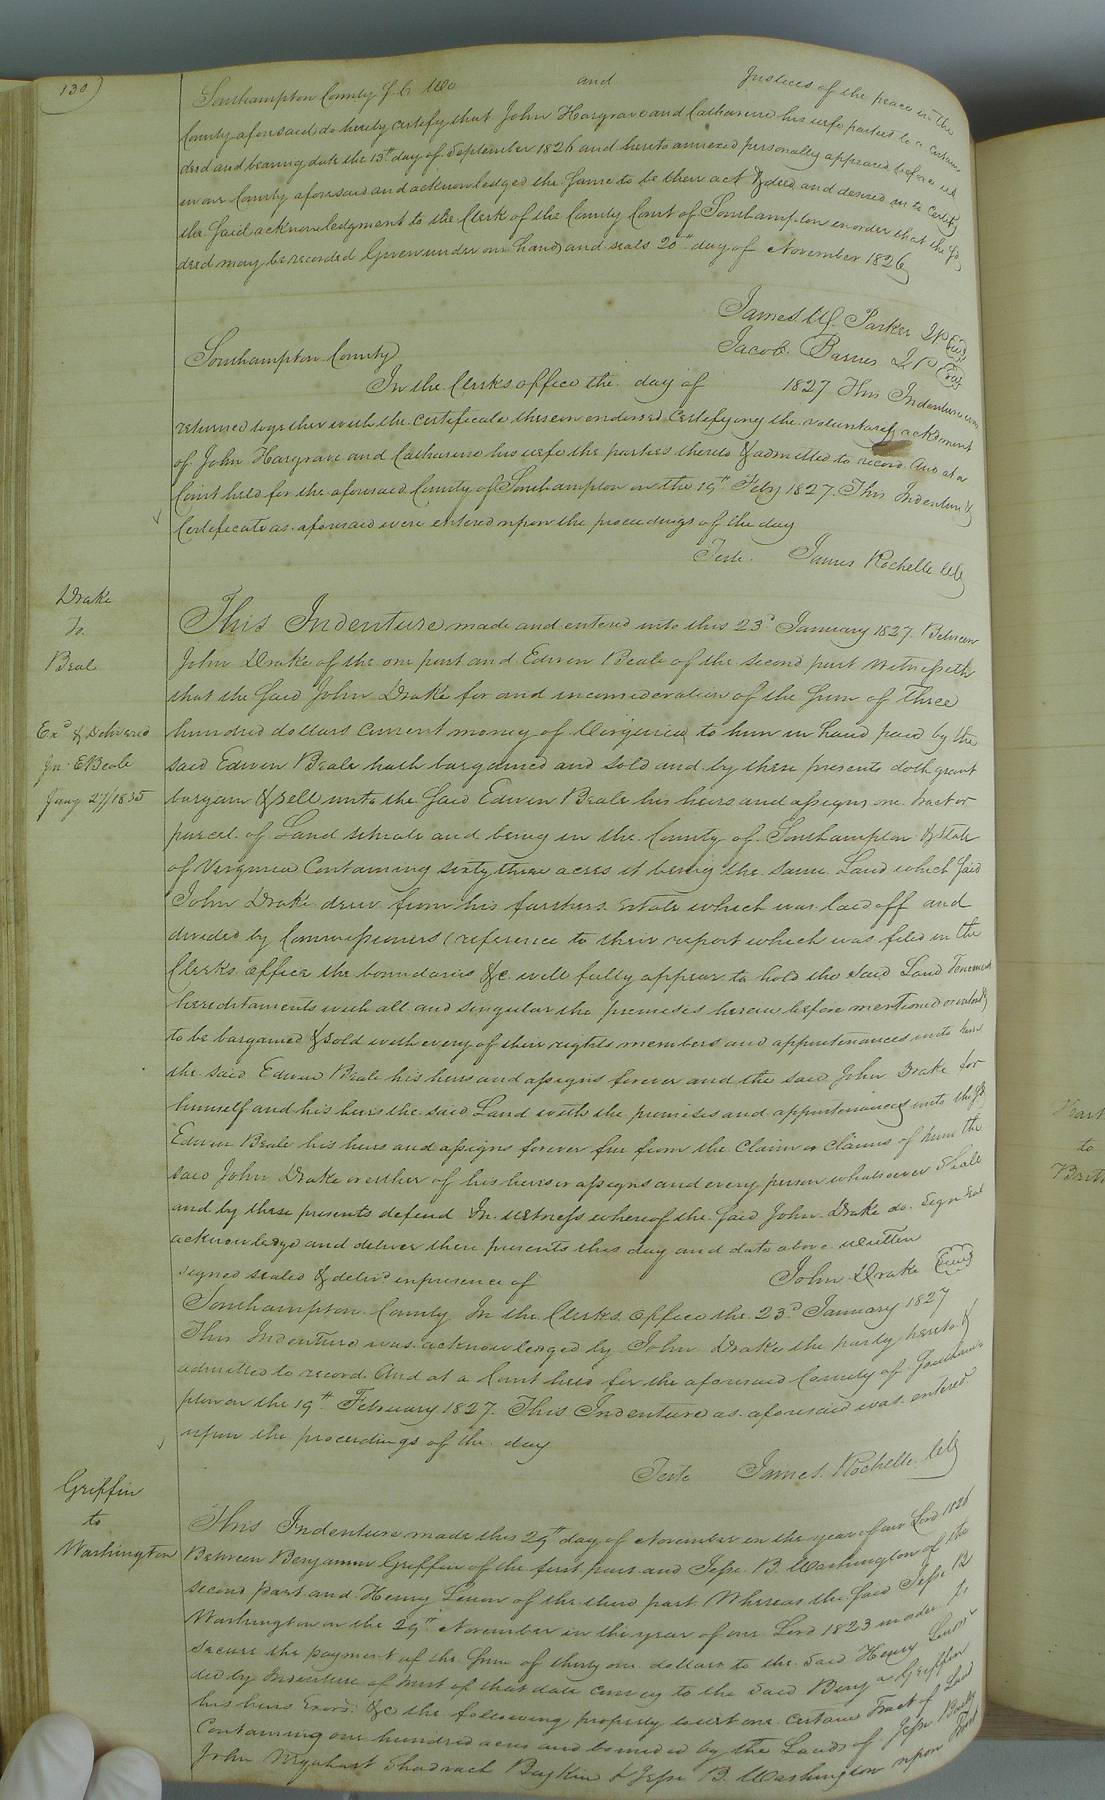 130
Southampton County Sc. We and Justices of the peace in the
County aforesaid do hereby certify that John Hargrave and Catharine his wife parties to a certain
deed and bearing date the 13th day of September 1826 and hereto annexed personally appeared before us
in our County aforesaid and acknowledged the same to be their act & deed and desired us to certify
the said acknowledgment to the Clerk of the County Court of Southampton in order that the sd
deed may be recorded Given under our hands and seals 20th day of November 1826
James W. Parker JP Seal
Jacob Barnes J.P. Seal
Southampton County
In the Clerks office the day of 1827 This Indenture was
returned together with the certificate thereon endorsed certifying the voluntary acknowment
of John Hargrave and Catharine his wife the parties thereto & admitted to record And at a
Court held for the aforesaid County of Southampton on the 19th Feby 1827. This Indenture &
Certificate as aforesaid were entered upon the proceedings of the day
Teste. James Rochelle Clk
Drake
To
Beal
Exd & Delivered
E Beale
Jany 27/1835
This Indenture made and entered into this 23d January 1827. Between
John Drake of the one part and Edwin Beale of the second part Witnesseth
that the said John Drake for and inconsideration of the sum of Three
hundred dollars current money of Virginia to him in hand paid by the
said Edwin Beale hath bargained and sold and by these presents doth grant
bargain & sell unto the said Edwin Beale his heirs and assigns one tract or
parcel of Land situate and being in the County of Southampton & State
of Virginia Containing sixty three acres it being the same Land which said
John Drake drew from his farthers Estate which was laid off and
divided by Commissioners (reference to their report which was filed in the
Clerks office the boundaries &c. will fully appear to hold the said Land Tenements
hereditaments with all and singular the premises herein before mentioned
to be bargained & sold with every of their rights members and appurtenances unto him
the said Edwin Beale his heirs and assigns forever and the said John Drake for
himself and his heirs the said Land with the premises and appurtenances unto the sd
Edwin Beale his heirs and assigns forever free from the claim or claims of him the
said John Drake or either of his heirs or assigns and every person whatsoever shall
and by these presents defend In witness whereof the said John Drake do. sign seal
acknowledge and deliver these presents this day and date above written
signed sealed & delivd in presence of John Drake Seal
Southampton County In the Clerks office the 23d January 1827
This Indenture was acknowledged by John Drake the party hereto &
admitted to record. And at a Court held for the aforesaid County of Southam
pton on the 19th February 1827. This Indenture as aforesaid was entered
upon the proceedings of the day
Teste James Rochelle Clk
Griffin
to
Washington
This Indenture made this 29th day of November in the year of our Lord 1826
Between Benjamin Griffin of the first part and Jesse B. Washington of the
second part and Henry Lenow of the third part Whereas the said Jesse B
Washington on the 29th November in the year of our Lord 1823 in order to
secure the payment of the sum of thirty one dollars to the said Henry Lenow
did by Indenture of trust of that date convey to the said Benj a Griffin
his heirs Exors. &c the following property to wit one certain Tract of Land
Containing one hundred acres and bounded by the Lands of Jesse
John Urquhart Shadrach & Jesse B. Washington upon
to